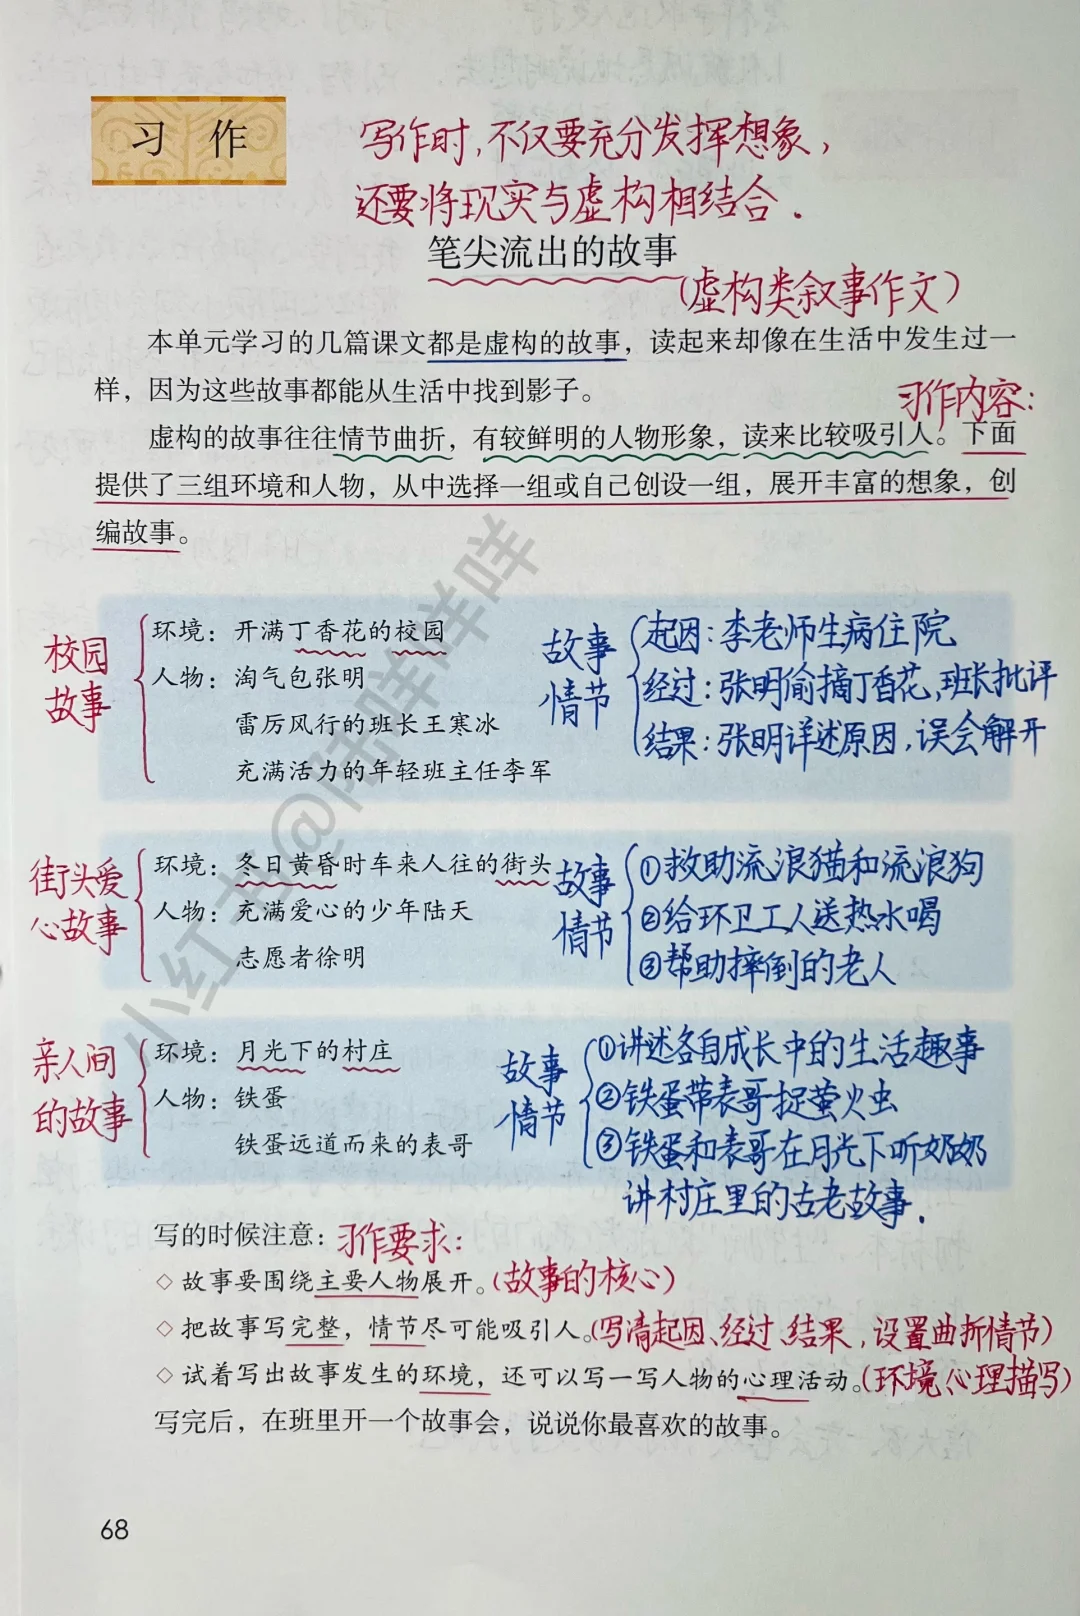 习 作
写作时,不仅要充分发挥想象,
还要将现实与虚构相结合.
笔尖流出的故事
(虚构类叙事作文)
本单元学习的几篇课文都是虚构的故事，读起来却像在生活中发生过一
样，因为这些故事都能从生活中找到影子。
习作内容:
虚构的故事往往情节曲折，有较鲜明的人物形象，读来比较吸引人。下面
提供了三组环境和人物，从中选择一组或自己创设一组，展开丰富的想象，创
编故事。
校园
故事
环境：开满丁香花的校园
人物：淘气包张明
雷厉风行的班长王寒冰
充满活力的年轻班主任李军
故事
情节
起因:李老师生病住院
经过:张明偷摘丁香花,班长批评
结果:张明详述原因,误会解开
街头爱
心故事
环境：冬日黄昏时车来人往的街头
人物：充满爱心的少年陆天
志愿者徐明
故事
情节
①救助流浪猫和流浪狗
②给环卫工人送热水喝
③帮助摔倒的老人
亲人间
的故事
环境：月光下的村庄
人物：铁蛋
铁蛋远道而来的表哥
故事
情节
①讲述各自成长中的生活趣事
②铁蛋带表哥捉萤火虫
③铁蛋和表哥在月光下听奶奶
讲村庄里的古老故事.
写的时候注意：习作要求:
◇ 故事要围绕主要人物展开。(故事的核心)
◇ 把故事写完整，情节尽可能吸引人。(写清起因、经过、结果,设置曲折情节)
◇ 试着写出故事发生的环境，还可以写一写人物的心理活动。(环境、心理描写)
写完后，在班里开一个故事会，说说你最喜欢的故事。
68
小红书@陆咩咩咩